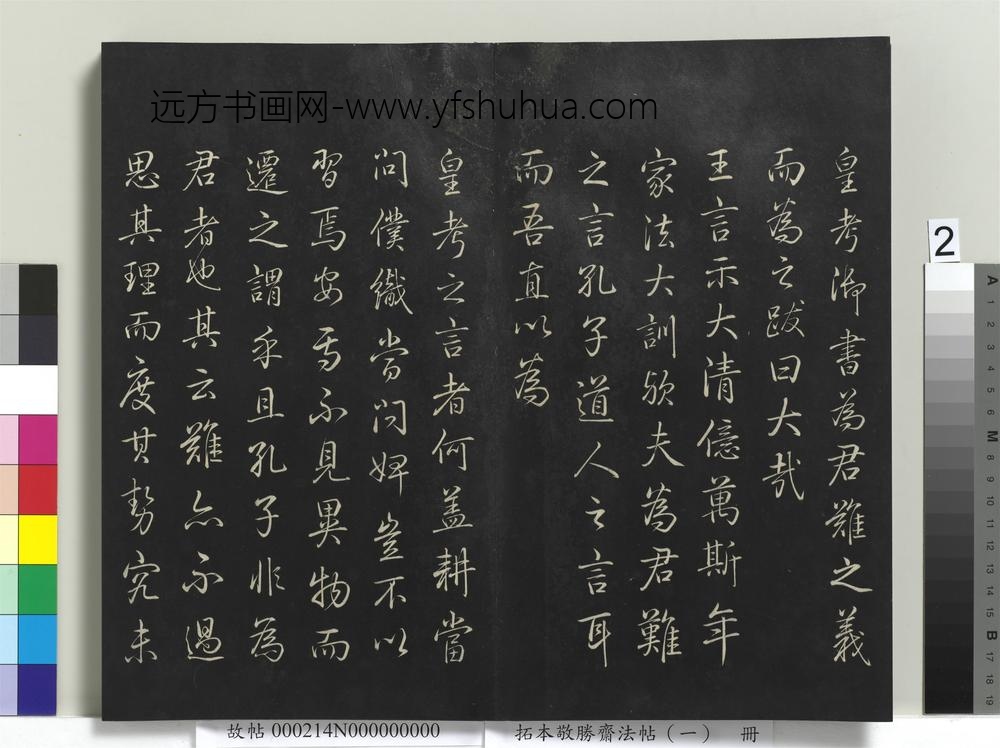 远方书画网-www.yfshuhua.com
皇考御書為君難之義
而為之跋曰大哉
王言示大清億萬斯年
家法大訓歟夫為君難
之言孔子道人之言耳
而吾直以為
皇考之言者何盖耕當
問僕織當問婢豈不以
習焉安焉不見異物而
遷之謂乎且孔子非為
君者也其云難亦不過
思其理而度其勢究未
2
故帖 000214N000000000
拓本敬勝齋法帖（一） 冊
A 1 2 3 4 5 6 M 8 9 10 11 12 13 14 15 B 17 18 19